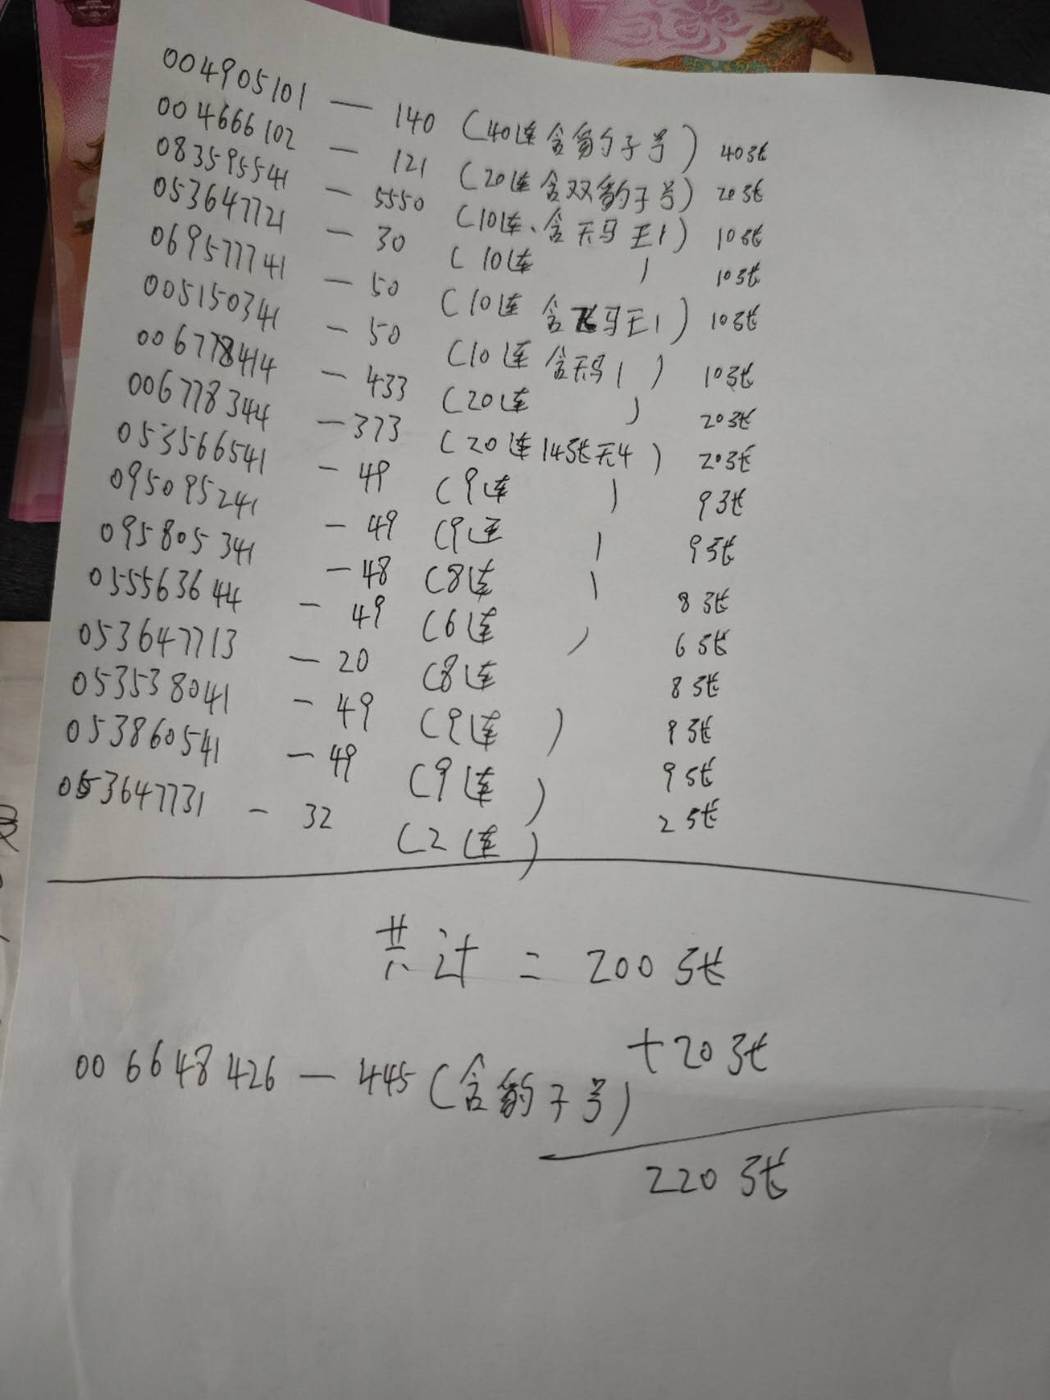 004905101 — 140 (40连含豹子号) 40张
004666102 — 121 (20连含双豹子号) 20张
083595541 — 5550 (10连、含天马王1) 10张
053647721 — 30 (10连 ) 10张
069577741 — 50 (10连 含飞马王1) 10张
005150341 — 50 (10连 含天马1 ) 10张
006778414 — 433 (20连 ) 20张
006778344 — 373 (20连14张无4 ) 20张
053566541 — 49 (9连 ) 9张
095095241 — 49 (9连 ) 9张
095805341 — 48 (8连 ) 8张
055563644 — 49 (6连 ) 6张
053647713 — 20 (8连 8张
053538041 — 49 (9连 ) 9张
053860541 — 49 (9连 ) 9张
053647731 - 32 (2连 ) 2张
共计 = 200张
+20张
006648426 — 445 (含豹子号)
220张